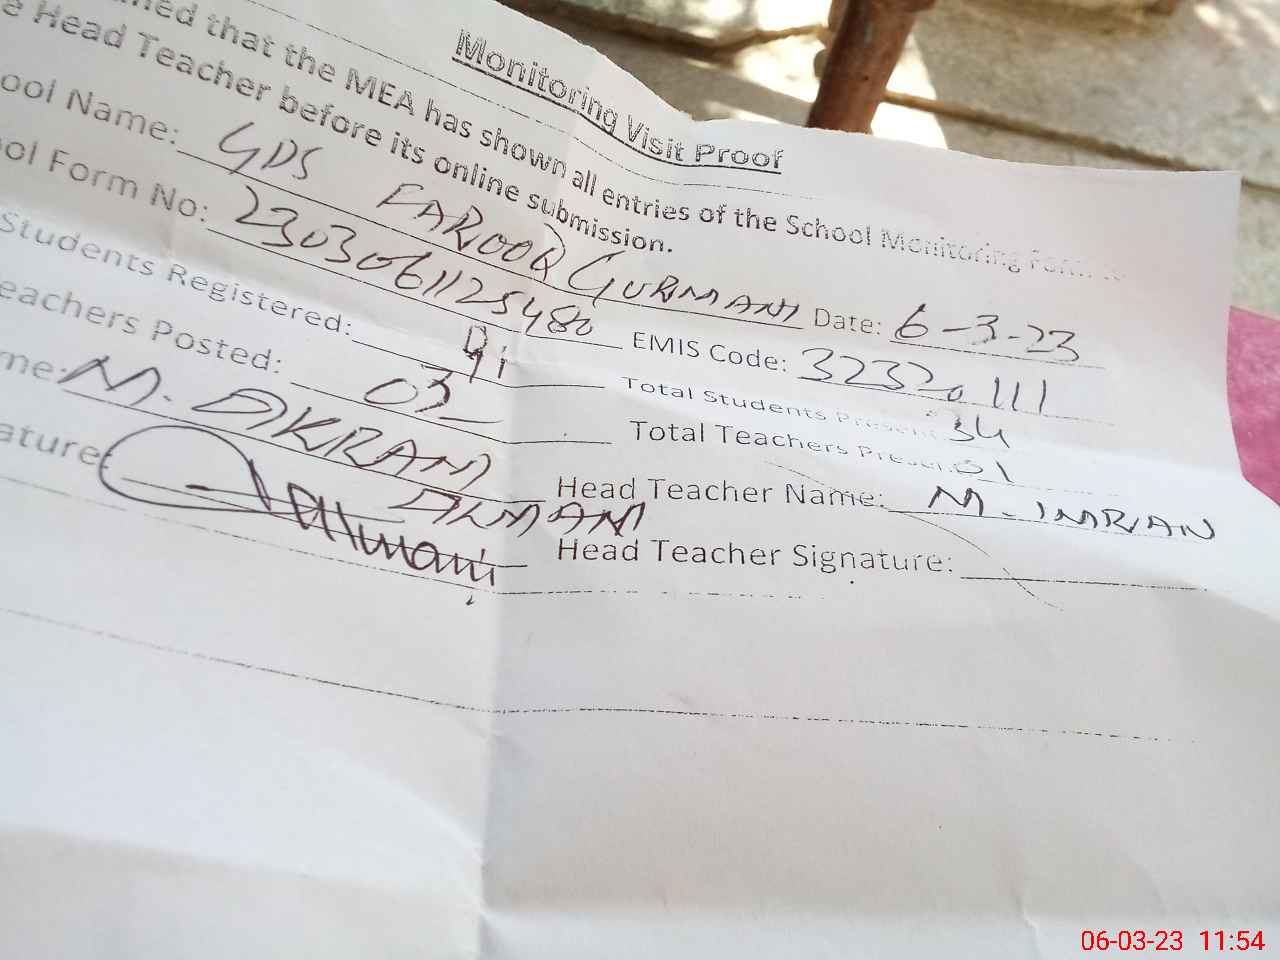 Monitoring Visit Proof
that the MEA has shown all entries of the School Monitoring Form
Head Teacher before its online submission.
ool Name: GPS FAROOQ GURMANI Date: 6-3-23
ol Form No: 2303061125480 EMIS Code: 32320111
Students Registered: Total Students Present: 34
eachers Posted: 03 Total Teachers Present: 01
me: M. AKRAM Head Teacher Name: M. IMRAN
ature: Head Teacher Signature:
06-03-23 11:54